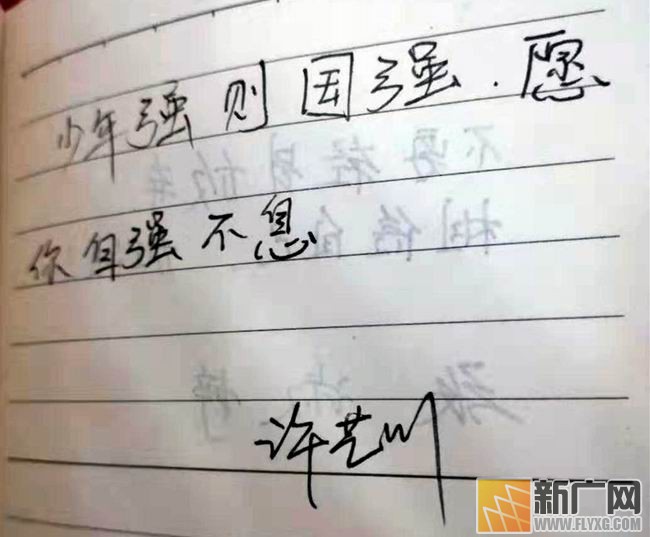 少年强则国强.愿
你自强不息
许艺川
新广网
WWW.FLYXG.COM